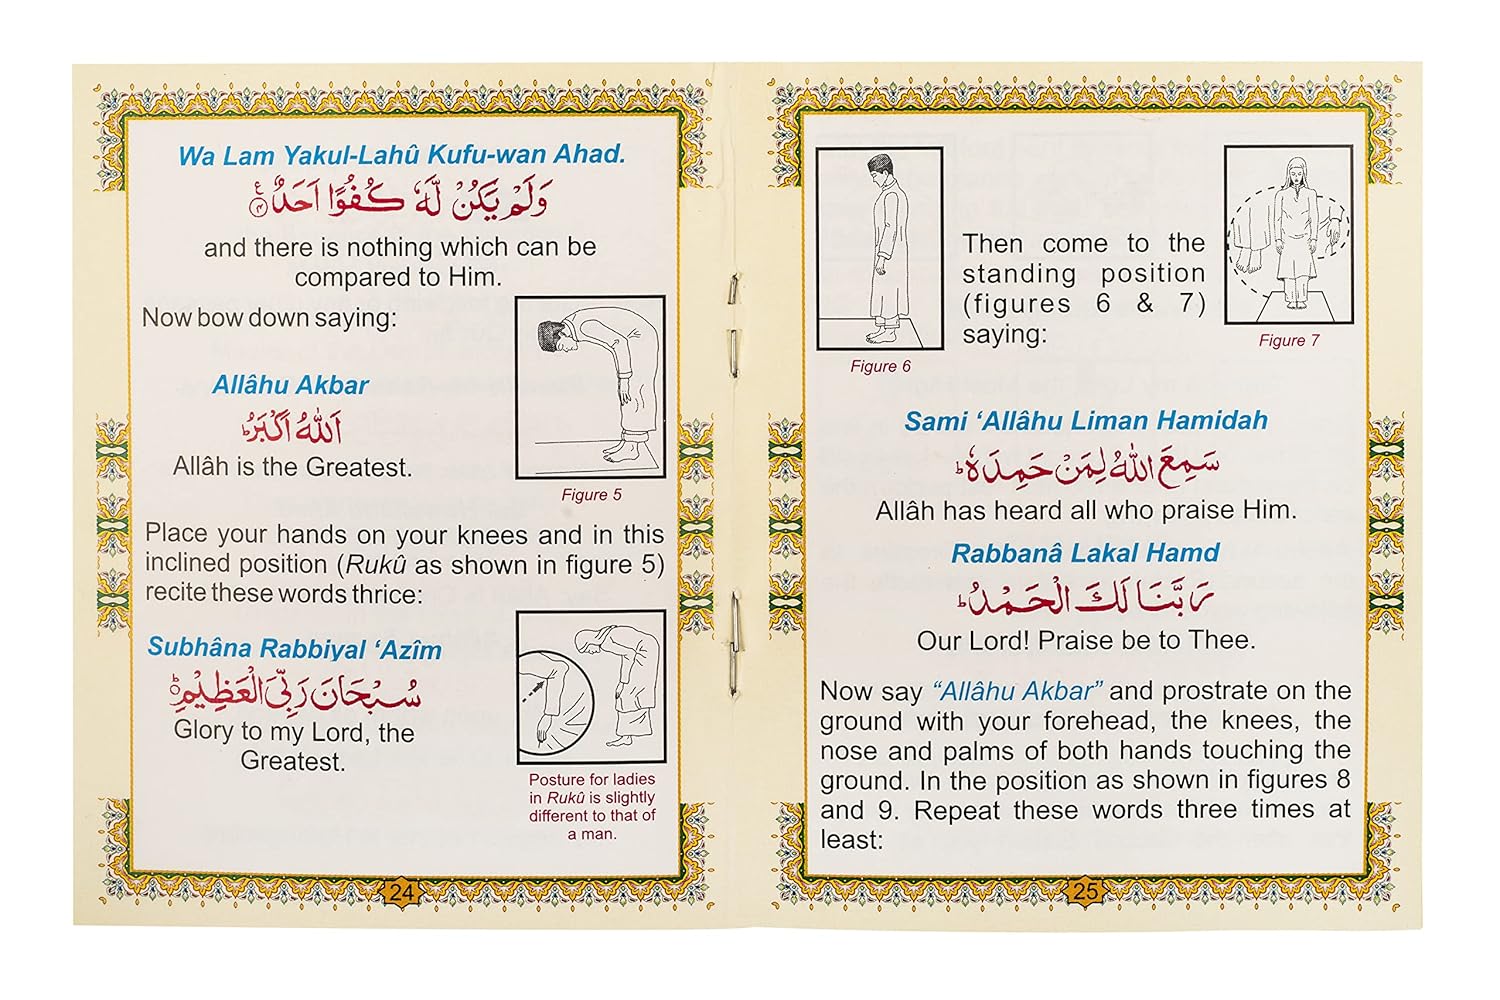 Wa Lam Yakul-Lahû Kufu-wan Ahad.
وَلَمْ يَكُنْ لَّهٗ كُفُوًا اَحَدٌ
and there is nothing which can be
compared to Him.
Now bow down saying:
Allâhu Akbar
اَللّٰهُ اَكْبَرُ ؕ
Allâh is the Greatest.
Figure 5
Place your hands on your knees and in this
inclined position (Rukû as shown in figure 5)
recite these words thrice:
Subhâna Rabbiyal ‘Azîm
سُبْحَانَ رَبِّيَ الْعَظِيْمِ ؕ
Glory to my Lord, the
Greatest.
Posture for ladies
in Rukû is slightly
different to that of
a man.
24
Figure 6
Then come to the
standing position
(figures 6 & 7)
saying:
Figure 7
Sami ‘Allâhu Liman Hamidah
سَمِعَ اللّٰهُ لِمَنْ حَمِدَهٗ ؕ
Allâh has heard all who praise Him.
Rabbanâ Lakal Hamd
رَبَّنَا لَكَ الْحَمْدُ ؕ
Our Lord! Praise be to Thee.
Now say “Allâhu Akbar” and prostrate on the
ground with your forehead, the knees, the
nose and palms of both hands touching the
ground. In the position as shown in figures 8
and 9. Repeat these words three times at
least:
25